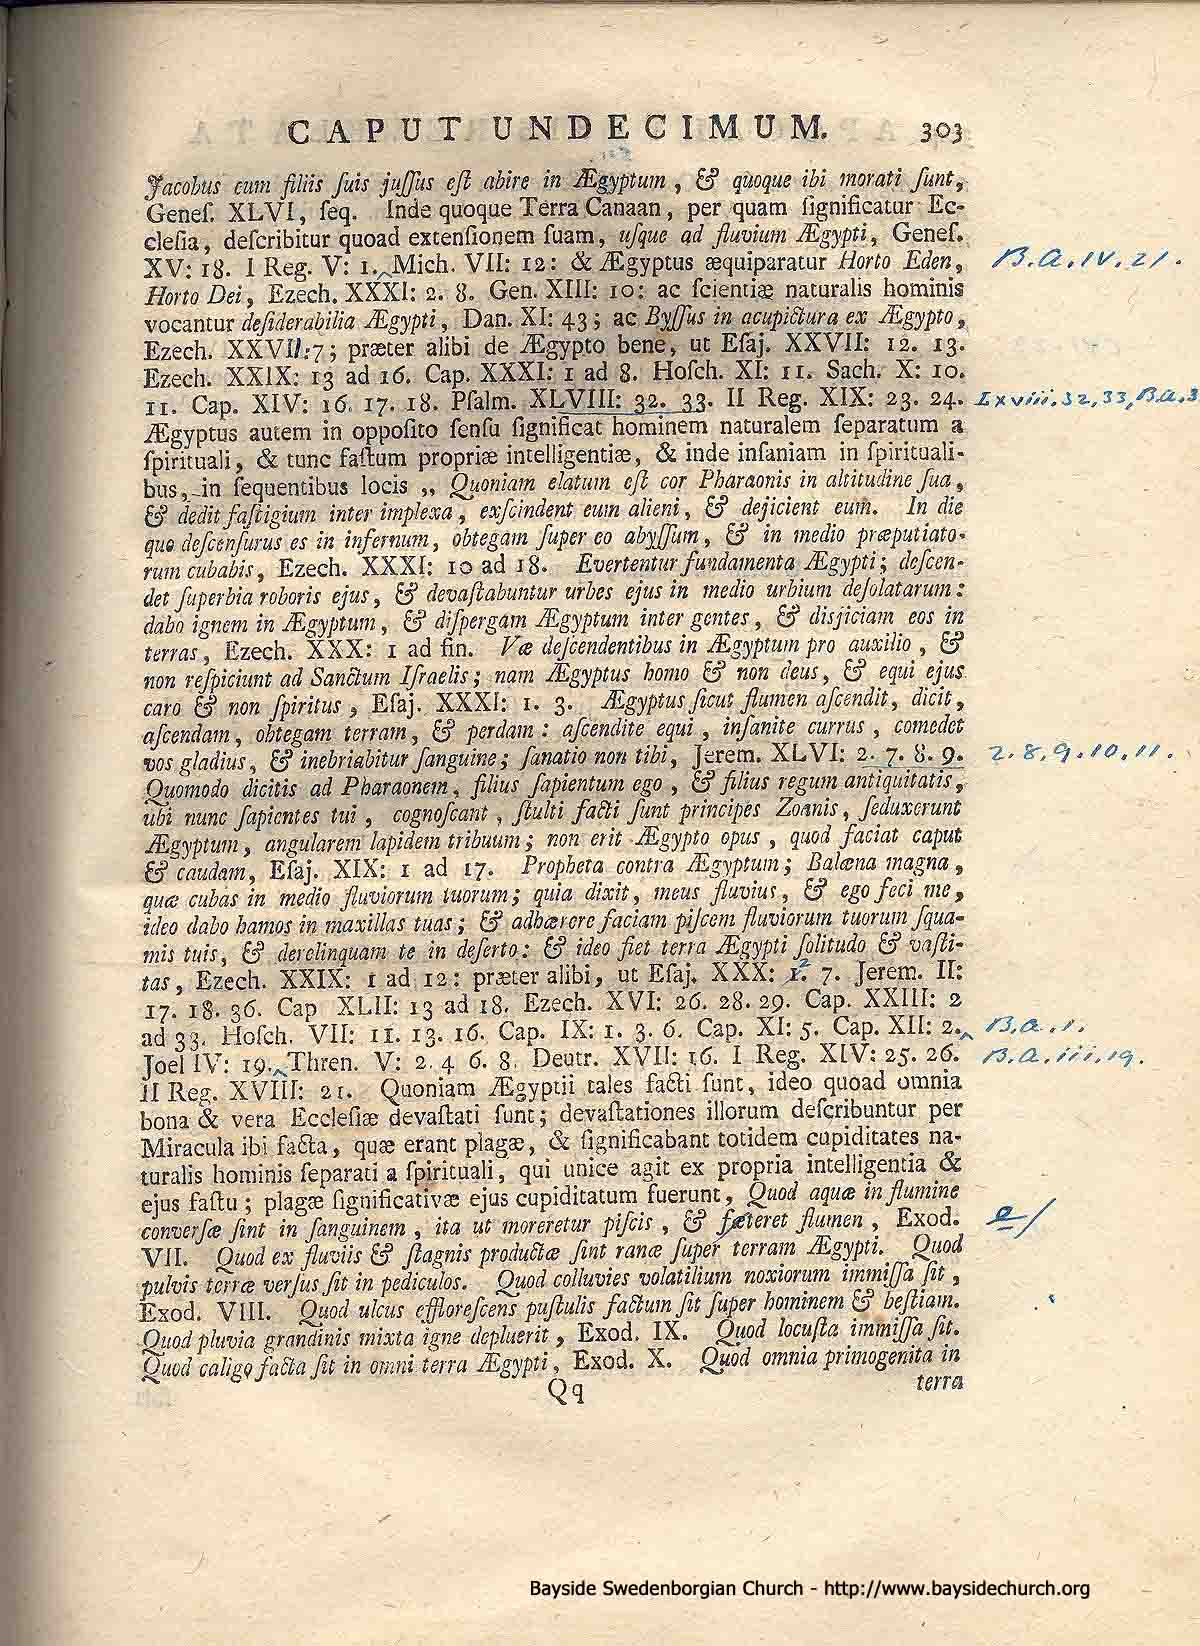 CAPUT UNDECIMUM. 303
Jacobus cum filiis ſuis juſſus eſt abire in Ægyptum, & quoque ibi morati ſunt,
Geneſ. XLVI, ſeq. Inde quoque Terra Canaan, per quam ſignificatur Ec-
cleſia, deſcribitur quoad extenſionem ſuam, uſque ad fluvium Ægypti, Geneſ.
XV: 18. I Reg. V: 1.‸ Mich. VII: 12: & Ægyptus æquiparatur Horto Eden, B.a.IV.21.
Horto Dei, Ezech. XXXI: 2. 8. Gen. XIII: 10: ac ſcientiæ naturalis hominis
vocantur deſiderabilia Ægypti, Dan. XI: 43; ac Byſſus in acupictura ex Ægypto,
Ezech. XXVII:7; præter alibi de Ægypto bene, ut Eſaj. XXVII: 12. 13.
Ezech. XXIX: 13 ad 16. Cap. XXXI: 1 ad 8. Hoſch. XI: 11. Sach. X: 10.
11. Cap. XIV: 16. 17. 18. Pſalm. XLVIII: 32. 33. II Reg. XIX: 23. 24. Lxviii.32,33,B.a.3
Ægyptus autem in oppoſito ſenſu ſignificat hominem naturalem ſeparatum a
ſpirituali, & tunc faſtum propriæ intelligentiæ, & inde inſaniam in ſpirituali-
bus, in ſequentibus locis „ Quoniam elatum eſt cor Pharaonis in altitudine ſua,
& dedit faſtigium inter implexa, exſcindent eum alieni, & dejicient eum. In die
quo deſcenſurus es in infernum, obtegam ſuper eo abyſſum, & in medio præputiato-
rum cubabis, Ezech. XXXI: 10 ad 18. Evertentur fundamenta Ægypti; deſcen-
det ſuperbia roboris ejus, & devaſtabuntur urbes ejus in medio urbium deſolatarum:
dabo ignem in Ægyptum, & diſpergam Ægyptum inter gentes, & disjiciam eos in
terras, Ezech. XXX: 1 ad fin. Væ deſcendentibus in Ægyptum pro auxilio, &
non reſpiciunt ad Sanctum Iſraelis; nam Ægyptus homo & non deus, & equi ejus
caro & non ſpiritus, Eſaj. XXXI: 1. 3. Ægyptus ſicut flumen aſcendit, dicit,
aſcendam, obtegam terram, & perdam: aſcendite equi, inſanite currus, comedet
vos gladius, & inebriabitur ſanguine; ſanatio non tibi, Jerem. XLVI: 2. 7. 8. 9. 2.8.9.10.11.
Quomodo dicitis ad Pharaonem, filius ſapientum ego, & filius regum antiquitatis,
ubi nunc ſapientes tui, cognoſcant, ſtulti facti ſunt principes Zoanis, ſeduxerunt
Ægyptum, angularem lapidem tribuum; non erit Ægypto opus, quod faciat caput
& caudam, Eſaj. XIX: 1 ad 17. Propheta contra Ægyptum; Balæna magna,
quæ cubas in medio fluviorum tuorum; quia dixit, meus fluvius, & ego feci me,
ideo dabo hamos in maxillas tuas; & adhærere faciam piſcem fluviorum tuorum ſqua-
mis tuis, & derelinquam te in deſerto: & ideo fiet terra Ægypti ſolitudo & vaſti-
tas, Ezech. XXIX: 1 ad 12: præter alibi, ut Eſaj. XXX: 1. 2 7. Jerem. II:
17. 18. 36. Cap XLII: 13 ad 18. Ezech. XVI: 26. 28. 29. Cap. XXIII: 2
ad 33. Hoſch. VII: 11. 13. 16. Cap. IX: 1. 3. 6. Cap. XI: 5. Cap. XII: 2.‸ B.a.1.
Joel IV: 19.‸ Thren. V: 2. 4 6. 8. Deutr. XVII: 16. I Reg. XIV: 25. 26. B.a.iii.19.
II Reg. XVIII: 21. Quoniam Ægyptii tales facti ſunt, ideo quoad omnia
bona & vera Eccleſiæ devaſtati ſunt; devaſtationes illorum deſcribuntur per
Miracula ibi facta, quæ erant plagæ, & ſignificabant totidem cupiditates na-
turalis hominis ſeparati a ſpirituali, qui unice agit ex propria intelligentia &
ejus faſtu; plagæ ſignificativæ ejus cupiditatum fuerunt, Quod aquæ in flumine
converſæ ſint in ſanguinem, ita ut moreretur piſcis, & fæteret flumen, Exod. e/
VII. Quod ex fluviis & ſtagnis productæ ſint ranæ ſuper terram Ægypti. Quod
pulvis terræ verſus ſit in pediculos. Quod colluvies volatilium noxiorum immiſſa ſit,
Exod. VIII. Quod ulcus effloreſcens puſtulis factum ſit ſuper hominem & beſtiam.
Quod pluvia grandinis mixta igne depluerit, Exod. IX. Quod locuſta immiſſa ſit.
Quod caligo facta ſit in omni terra Ægypti, Exod. X. Quod omnia primogenita in
Qq terra
Bayside Swedenborgian Church - http://www.baysidechurch.org